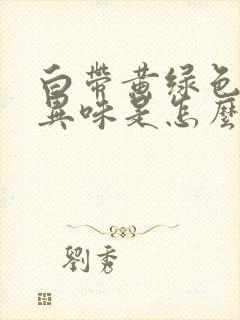 白带黄绿色
異味是怎麼
劉秀